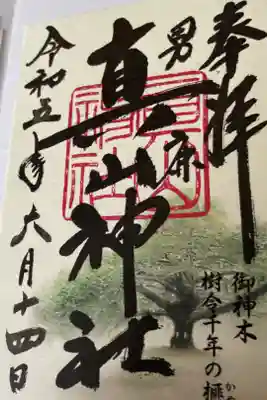 奉拝
男鹿
真山神社
令和五年六月十四日
御神木
樹令千年の榧
かや